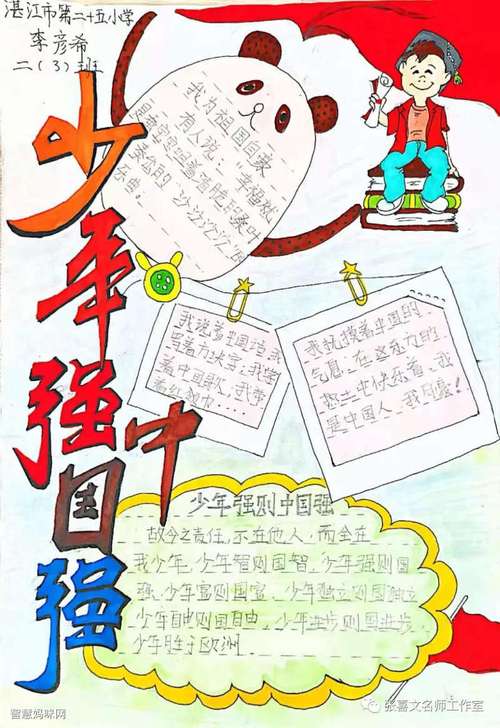 湛江市第二十五小学
李彦希
二(3)班
少年强中国强
我为祖国自豪
有人说:幸福就
乐曲.
我说着中国话,我
写着方块字,我学
着中国歌,我带
气息,在这
土中快乐着,我
是中国人,我自豪!
少年强则中国强
故今之责任,不在他人,而全在
我少年,少年智则国智,少年强则国
强,少年富则国富,少年独立则国独立
少年自由则国自由,少年进步则国进步,
少年胜于欧洲
智慧妈咪网
张嘉文名师工作室